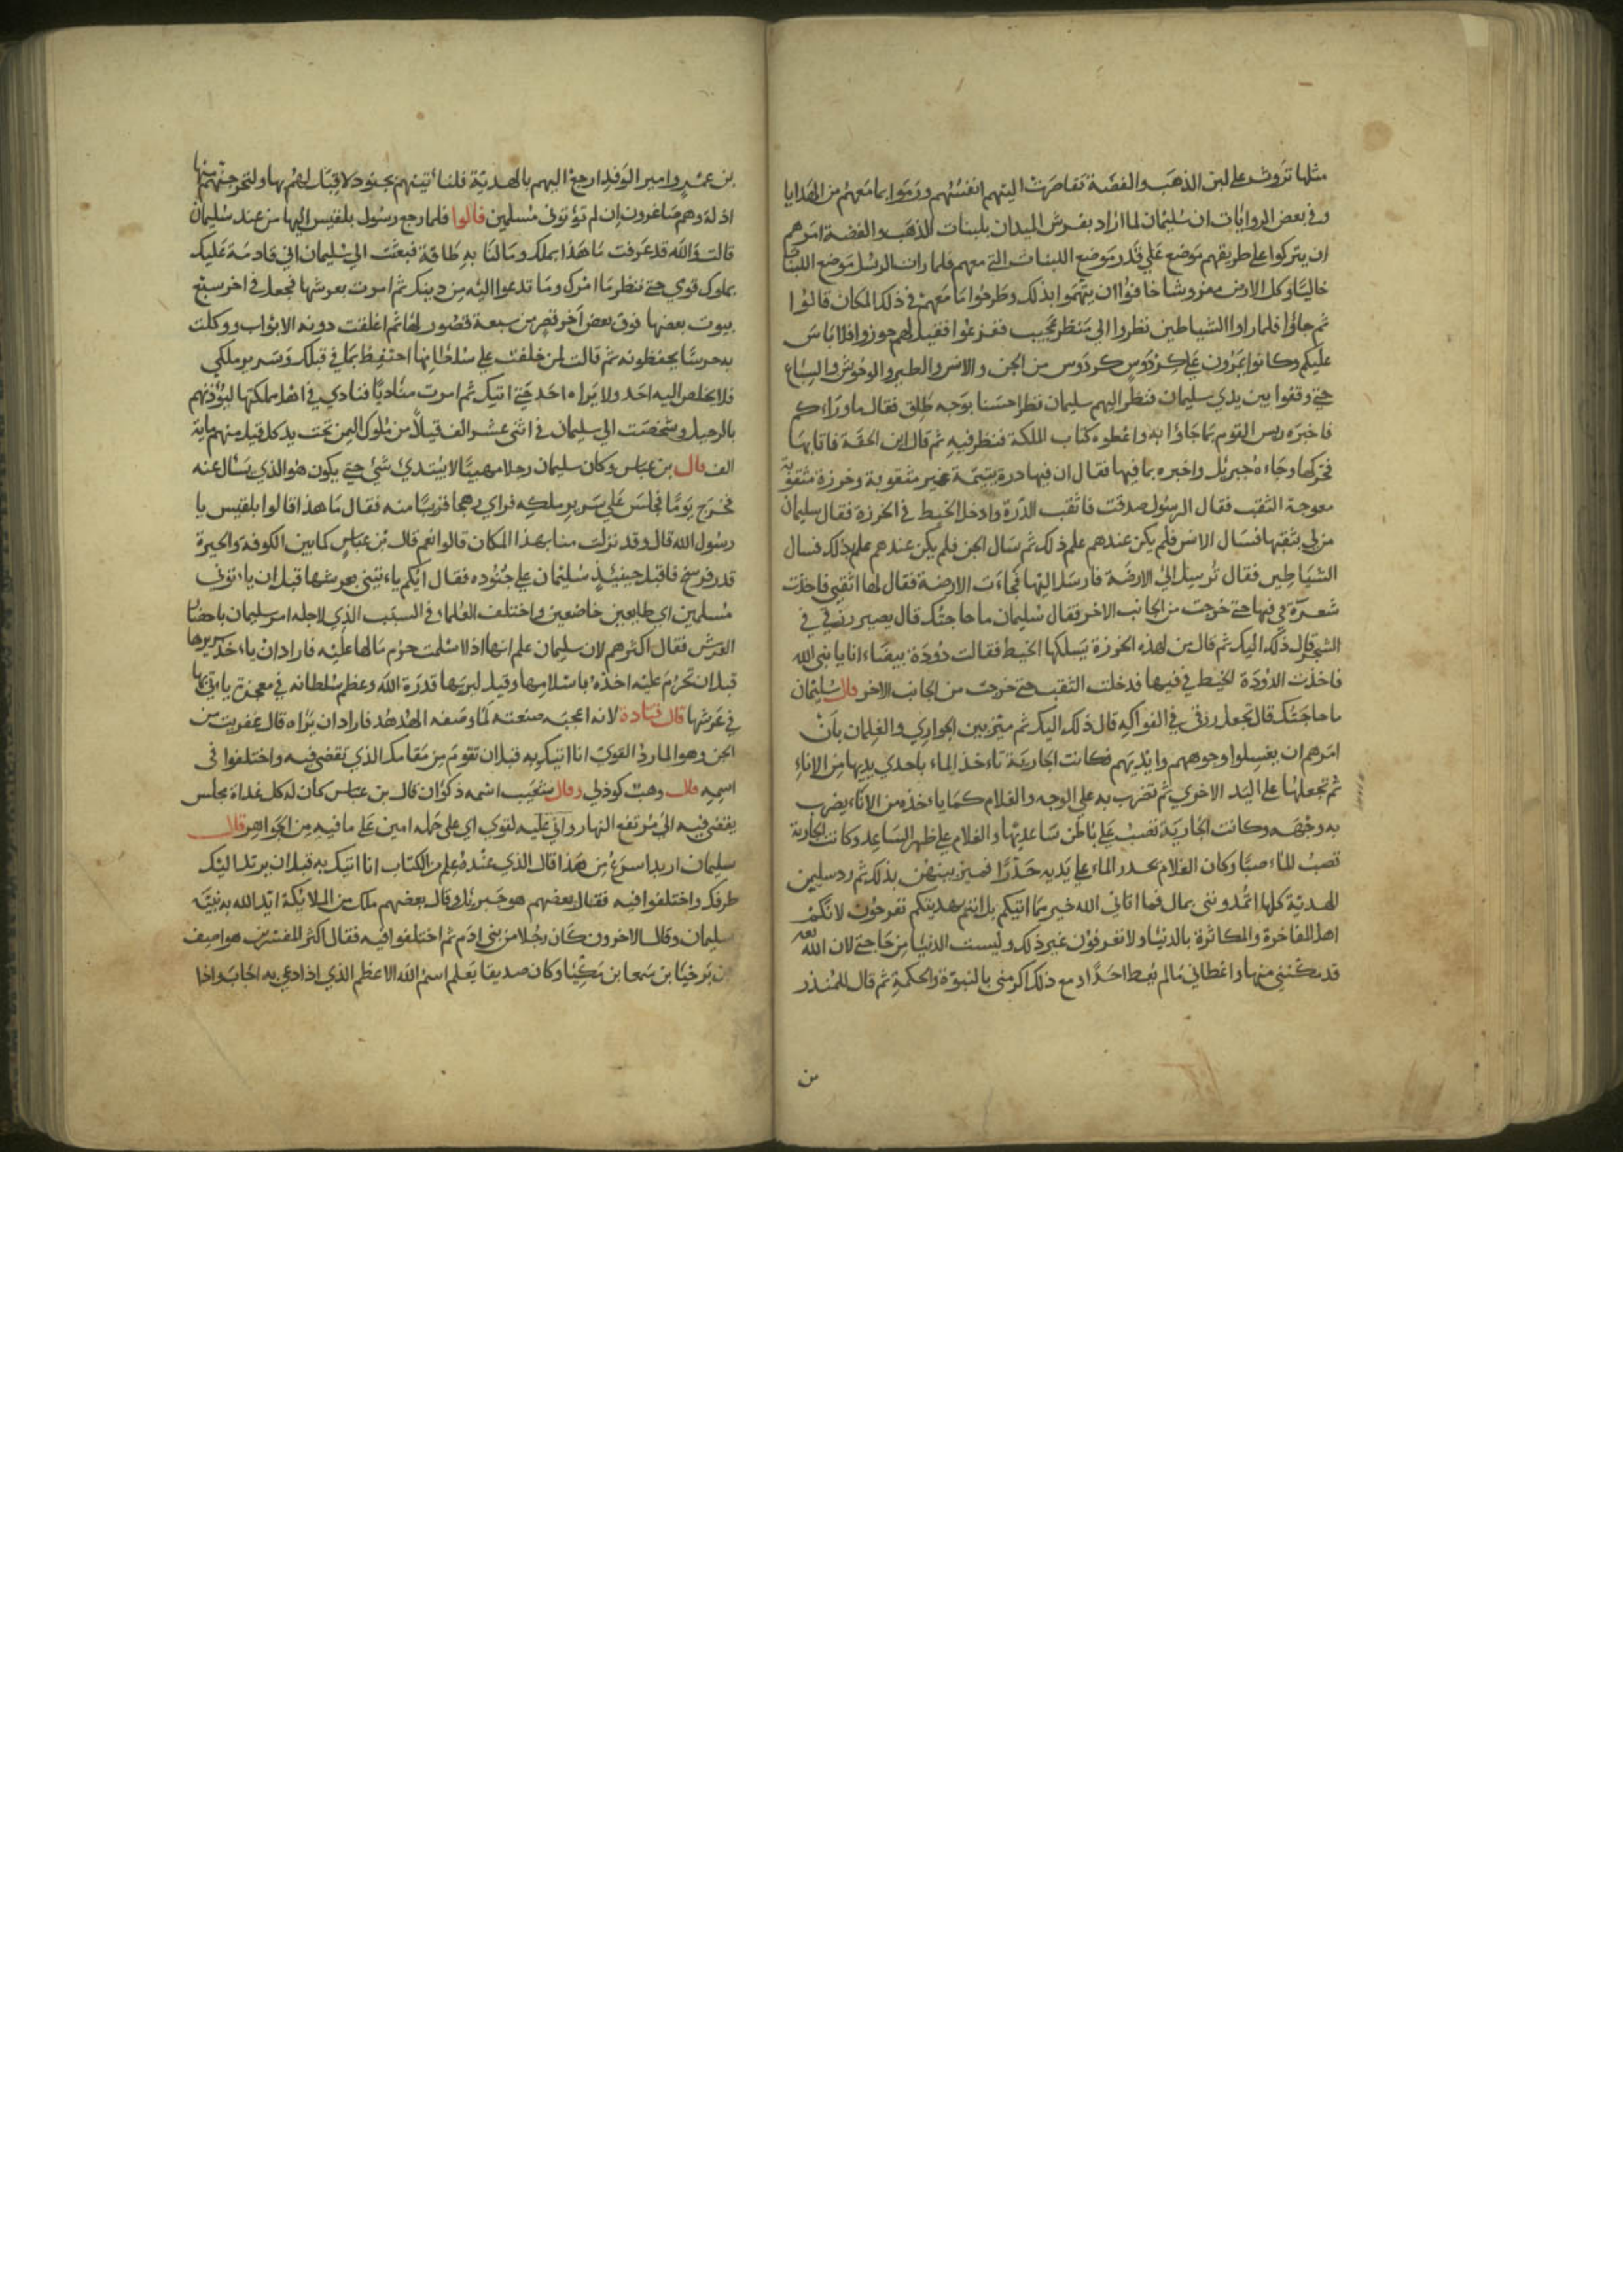 مثلها تروث على لبن الذهب والفضة تقاصرت اليهم انفسهم ورموا بما معهم من الهدايا
وفي بعض الروايات ان سليمان لما اراد بفرش الميدان بلبنات الذهب والفضة امرهم
ان يتركوا على طريقهم موضع على قدر موضع اللبنات التي معهم فلما رات الرسل موضع اللبنات
خاليا وكل الارض مفروشا خافوا ان يتهموا بذلك وطرحوا ما معهم في ذلك المكان قالوا
ثم جاؤا فلما راوا الشياطين نظروا الى منظر عجيب ففزعوا فقيل لهم جوزوا فلا باس
عليكم وكانوا يمرون على كردوس كردوس من الجن والانس والطير والوحوش والسباع
حتى وقفوا بين يدي سليمان فنظر اليهم سليمان نظرا حسنا بوجه طلق فقال ما وراءكم
فاخبره ريس القوم بما جاؤا به واعطوه كتاب الملكة فنظر فيه ثم قال اين الحقة فاتا بها
فحركها وجاءه جبريل واخبره بما فيها فقال ان فيها درة يتيمة غير مثقوبة وخرزة مثقوبة
معوجة الثقب فقال الرسول صدقت فاثقب الدرة وادخل الخيط في الخرزة فقال سليمان
من لي بثقبها فسال الانس فلم يكن عندهم علم ذلك ثم سال الجن فلم يكن عندهم علم ذلك فسال
الشياطين فقال ترسل الى الارضة فارسل اليها فجاءت الارضة فقال لها اثقبي فاخذت
شعرة في فيها حتى خرجت من الجانب الاخر فقال سليمان ما حاجتك قال يصير رزقي في
الشجر قال ذلك اليك ثم قال من لهذه الخرزة يسلكها الخيط فقالت دودة بيضاء انا يا نبي الله
فاخذت الدودة الخيط في فيها فدخلت الثقب حتى خرجت من الجانب الاخر قال سليمان
ما حاجتك قال تجعل رزقي في الفواكه قال ذلك اليك ثم ميز بين الجواري والغلمان بان
امرهم ان يغسلوا وجوههم وايديهم فكانت الجارية تاءخذ الماء باحدى يديها من الاناء
ثم تجعلها على اليد الاخرى ثم تضرب به على الوجه والغلام كما ياءخذه من الاناء يضرب
به وجهه وكانت الجارية تصب على باطن ساعديها والغلام على ظهر الساعد وكانت الجارية
تصب الماء صبا وكان الغلام يحدر الماء على يديه حدرا فميز بينهن بذلك ثم رد سليمن
الهدية كلها اتمدونني بمال فما اتاني الله خير مما اتيكم بل انتم بهديتكم تفرحون لانكم
اهل المفاخرة والمكاثرة بالدنيا ولا تعرفون غير ذلك وليست الدنيا من حاجتي لان الله
قد مكنني منها واعطاني ما لم يعط احدا ومع ذلك اكرمني بالنبوة والحكمة ثم قال للمنذر
بن
بن عمير وامير الوفد ارجع اليهم بالهدية فلناءتينهم بجنود لا قبل لهم بها ولنخرجنهم منها
اذلة وهم صاغرون ان لم تؤتوني مسلمين قالوا فلما رجع رسول بلقيس اليها من عند سليمان
قالت والله قد عرفت ما هذا بملك وما لنا به طاقة فبعثت الى سليمان اني قادمة عليك
بملوك قومي حتى ننظر ما امرك وما تدعوا اليه من دينك ثم امرت بعرشها فجعل في اخر سبع
بيوت بعضها فوق بعض اخر قصر من سبعة قصور لها ثم اغلقت دونه الابواب ووكلت
به حرسا يحفظونه ثم قالت لمن خلفت على سلطانها احتفظ بما في قبلك وسرير ملكي
فلا يخلص اليه احد ولا يراه احد حتى اتيك ثم امرت مناديا فنادى في اهل ملكتها ليؤذنهم
بالرحيل وشخصت الى سليمان في اثنى عشر الف قيلا من ملوك اليمن تحت يد كل قيل منهم ماية
الف قال بن عباس وكان سليمان رجلا مهيبا لا يبتدئ شئ حتى يكون هو الذي يسال عنه
فخرج يوما فجلس على سرير ملكه فراى رهجا قريبا منه فقال ما هذا قالوا بلقيس يا
رسول الله قال وقد نزلت منا بهذا المكان قالوا نعم قال بن عباس كما بين الكوفة والحيرة
قدر فرسخ فاقبل حينئذ سليمان على جنوده فقال ايكم ياءتيني بعرشها قبل ان ياءتوني
مسلمين اي طايعين خاضعين واختلف العلماء في السبب الذي لاجله امر سليمان باحضار
العرش فقال اكثرهم لان سليمان علم انها اذا اسلمت حرم مالها عليه فاراد ان ياءخذ سريرها
قبل ان تحرم عليه اخذه باسلامها وقيل ليريها قدرة الله وعظم سلطانه في معجزة ياءتي بها
في عرشها قال قتادة لانه اعجبه صنعته لما وصفه الهدهد فاراد ان يراه قال عفريت من
الجن وهو المارد القوي انا اتيك به قبل ان تقوم من مقامك الذي تقضي فيه واختلفوا في
اسمه قال وهب كوذي وقال شعيب اسمه ذكوان قال بن عباس كان له كل غداة مجلس
يقضي فيه الى مرتفع النهار واني عليه لقوي اي على حمله امين على ما فيه من الجواهر قال
سليمان اريد اسرع من هذا قال الذي عنده علم من الكتاب انا اتيك به قبل ان يرتد اليك
طرفك واختلفوا فيه فقال بعضهم هو جبريل وقال بعضهم ملك من الملائكة ايد الله به نبيه
سليمان وقال الاخرون كان رجلا من بني ادم ثم اختلفوا فيه فقال اكثر المفسرين هو اصف
بن برخيا بن سمعيا بن منكيا وكان صديقا يعلم اسم الله الاعظم الذي اذا دعي به اجاب واذا